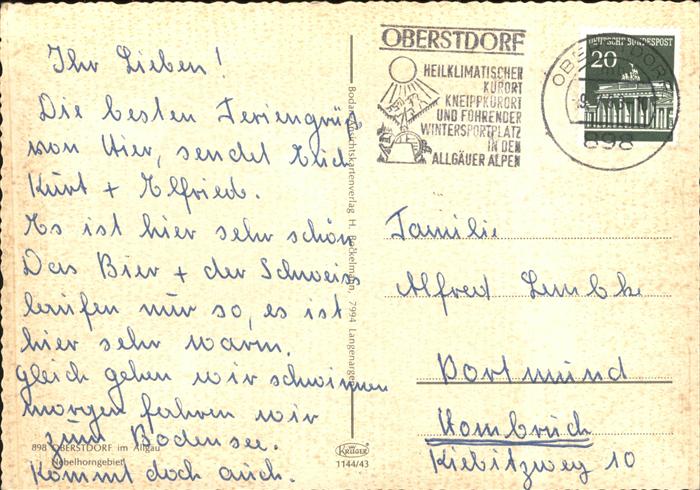 Ihr Lieben!
Die besten Feriengrüße
von Hier, sendet Euch
Kurt + Elfriede.
Es ist hier sehr schön
Das Bier + der Schweiss
laufen nur so, es ist
hier sehr warm.
gleich gehen wir schwimmen
morgen fahren wir
zum Bodensee.
Kommt doch auch.
898 OBERSTDORF im Allgäu
Nebelhorngebiet
Bodan-Ansichtskartenverlag H. Bockelmann, 7994 Langenargen
KRÜGER
1144/43
OBERSTDORF
HEILKLIMATISCHER
KURORT
KNEIPPKURORT
UND FÜHRENDER
WINTERSPORTPLATZ
IN DEN
ALLGÄUER ALPEN
DEUTSCHE BUNDESPOST
20
OBERSTDORF
898
Familie
Alfred Lembke
Dortmund
Hombruch
Kiebitzweg 10